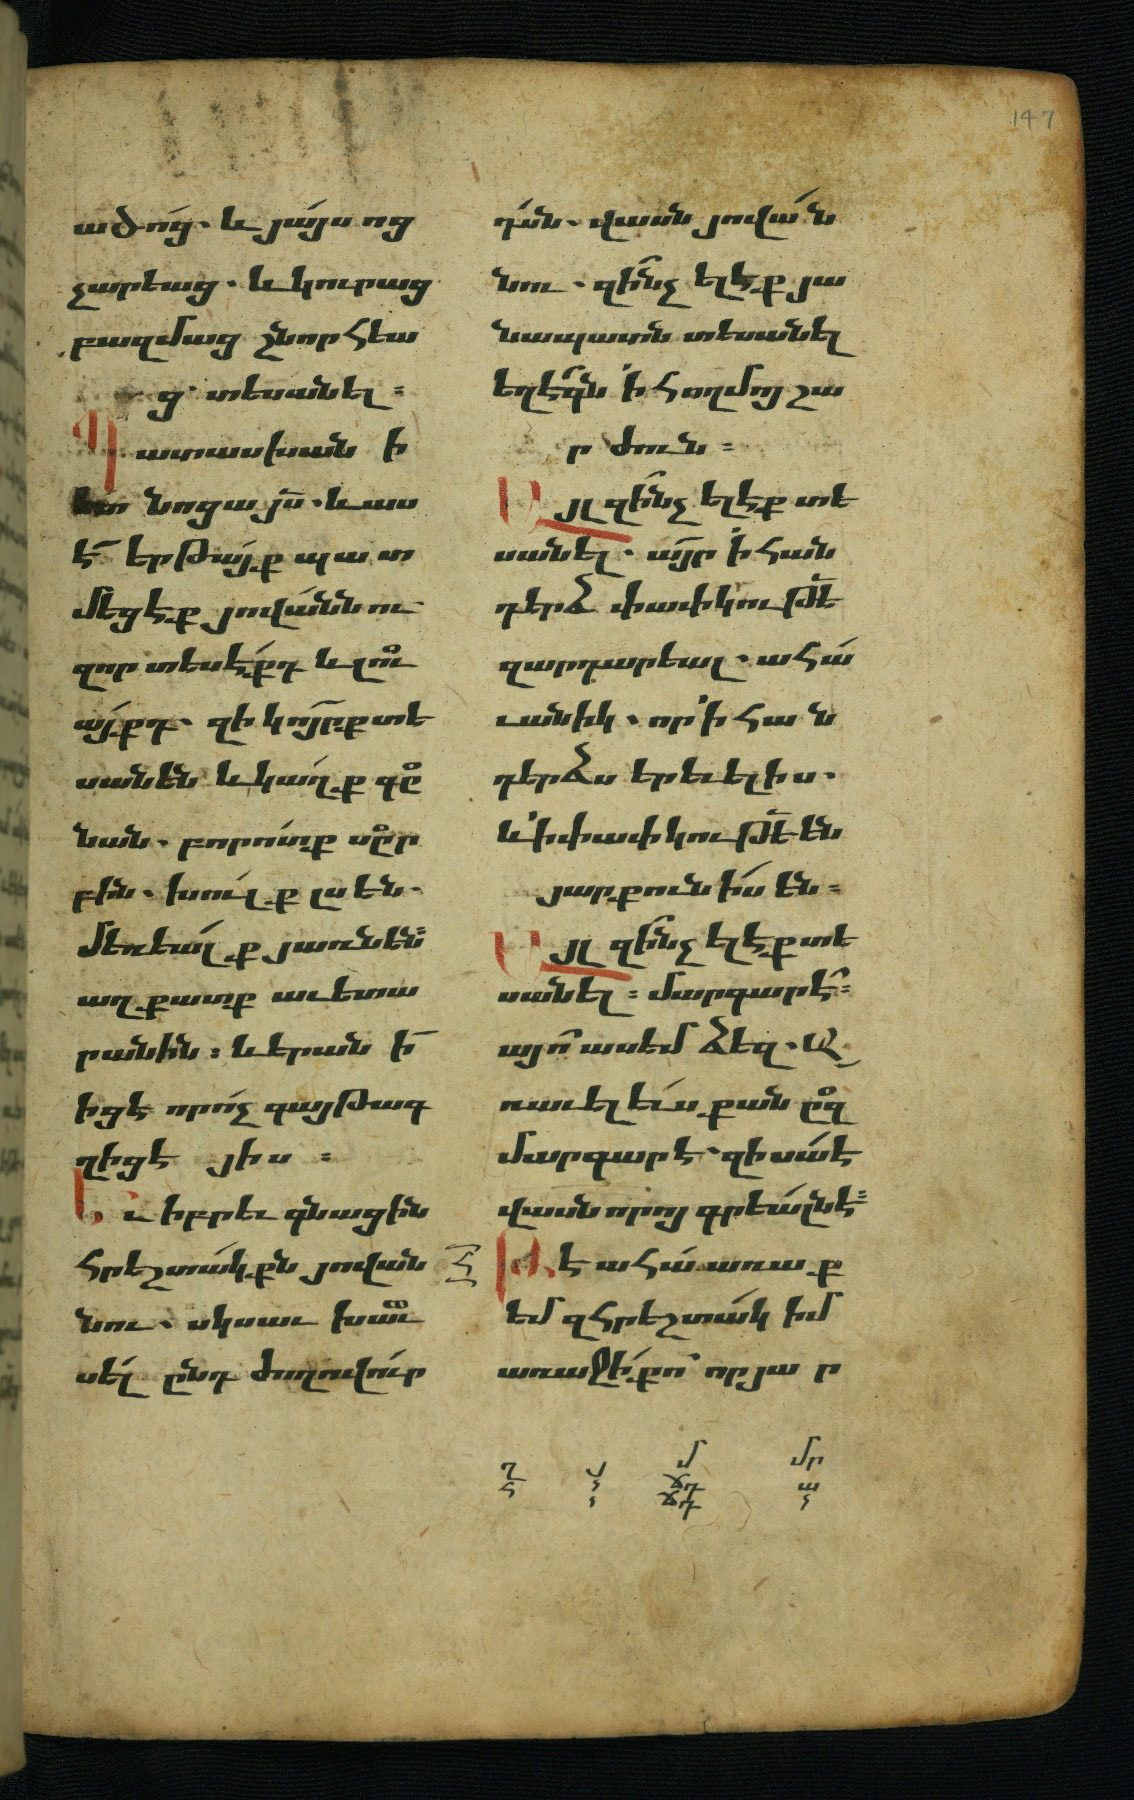 147
ածոց. և յայս ոց
չարեաց. և կուրաց
բազմաց շնորհեա
ց տեսանել:
Պատասխանի
ետ նոցա յս. և աս
է երթայք պատ
մեցէք յովաննու
զոր տեսէքդ և լու
այքդ. զի կոյրք տե
սանեն և կաղք գը
նան. բորոտք սըր
բին. խուլք լսեն.
մեռեալք յառնեն:
աղքատք աւետա
րանին: և երանի
իցէ որ ոչ գայթագ
ղիցէ յիս:
Եւ իբրեւ գնացին
հրեշտակքն յովան
նու. սկսաւ խաւ
սել ընդ ժողովուր
դսն. վասն յովան
նու. զինչ ելէք յա
նապատն տեսանել
եղէգն ի հողմոյ շա
րժուն:
Այլ զինչ ելէք տե
սանել. այր ի հան
դերձ փափկութե
զարդարեալ. ահա
ւանիկ. որ ի հան
դերձս երեւելիս.
և ի փափկութե են
յարքունիս են:
Այլ զինչ ելէք տե
սանել: մարգարէ:
այո ասեմ ձեզ. Ա
ռաւել եւս քան ըզ
մարգարէ. զի սա է
վասն որոյ գրեալն է:
Թե ահա առաք
եմ զհրեշտակ իմ
առաջի քո որ յար